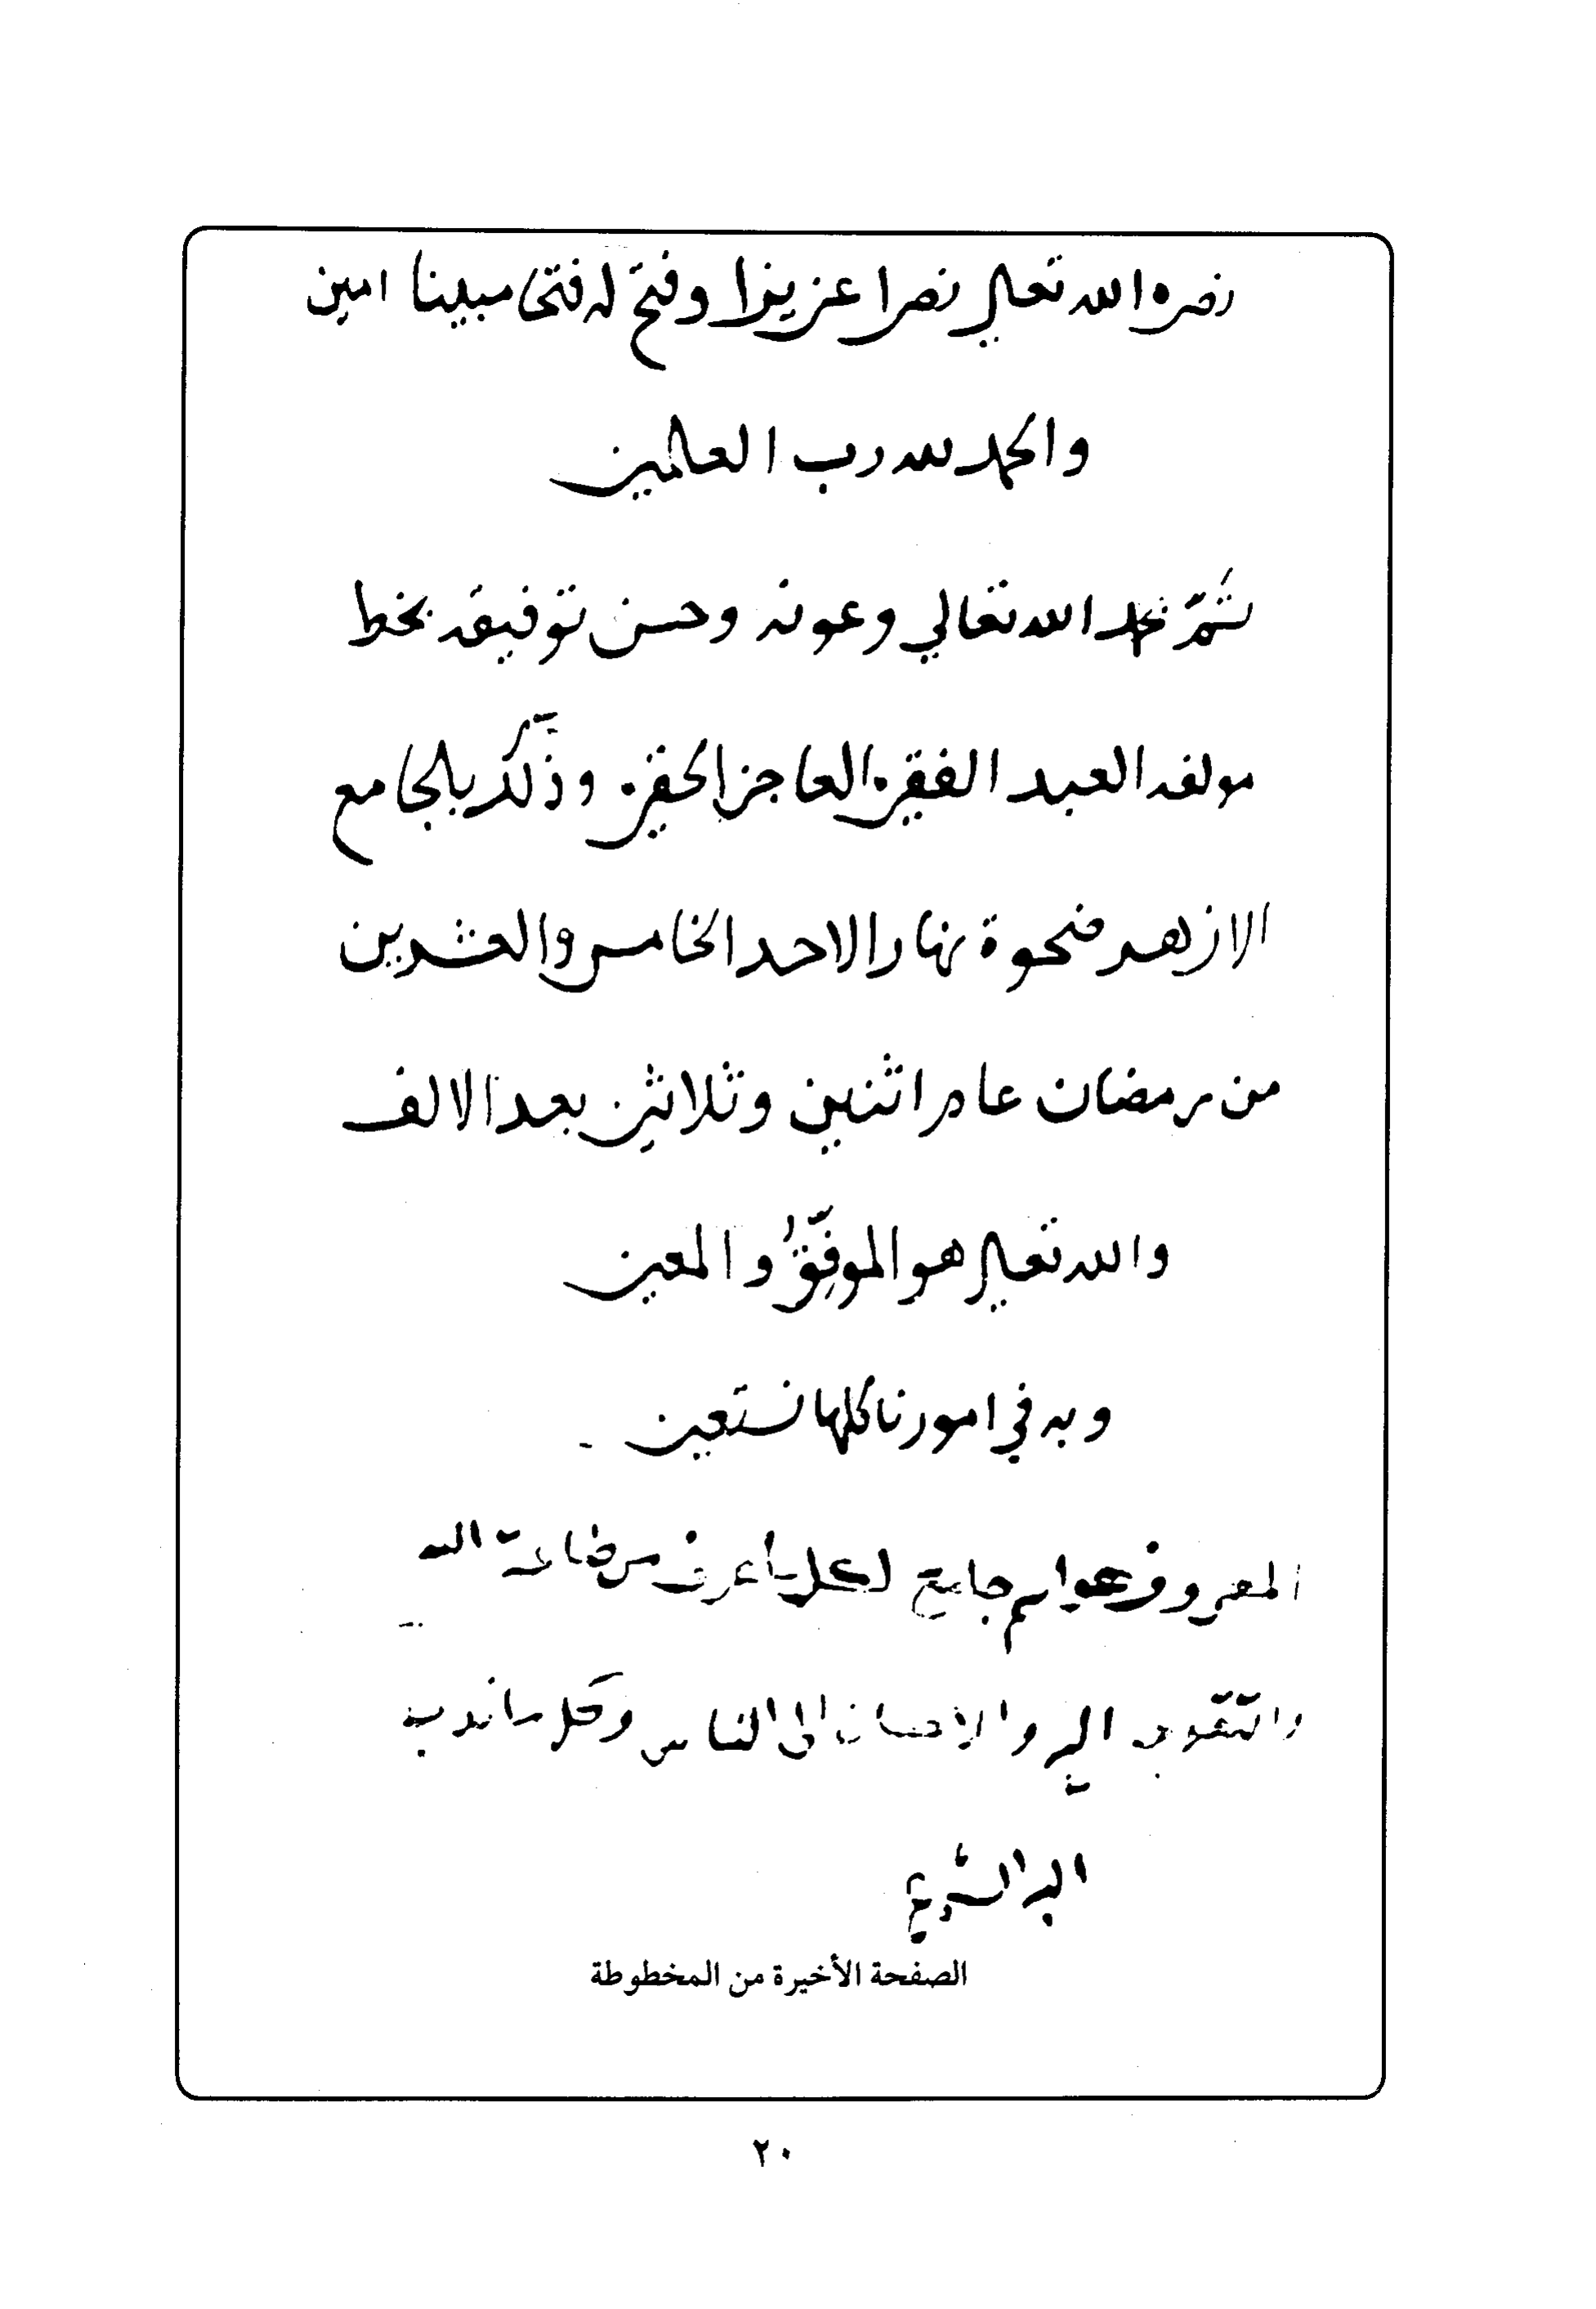 نصره الله تعالي نصرا عزيزا وفتح له فتحا مبينا امين
والحمد لله رب العالمين
تمَّ بحمد الله تعالي وعونه وحسن توفيقه بخط
مولفه العبد الفقير العاجز الحقير وذَلك بالجامع
الازهر ضحوة نهار الاحد الخامس والعشرين
من رمضان عام اثنين وثلاثين بعد الالف
والله تعالي هو الموفِّقُ والمعين
وبه في امورنا كلها نستعين
المعروف هو اسم جامع لكل ما عرف من طاعة الله
والتقرب اليه والاحسان الى الناس وكل ما ندب
اليه الشرع
الصفحة الأخيرة من المخطوطة
٢٠